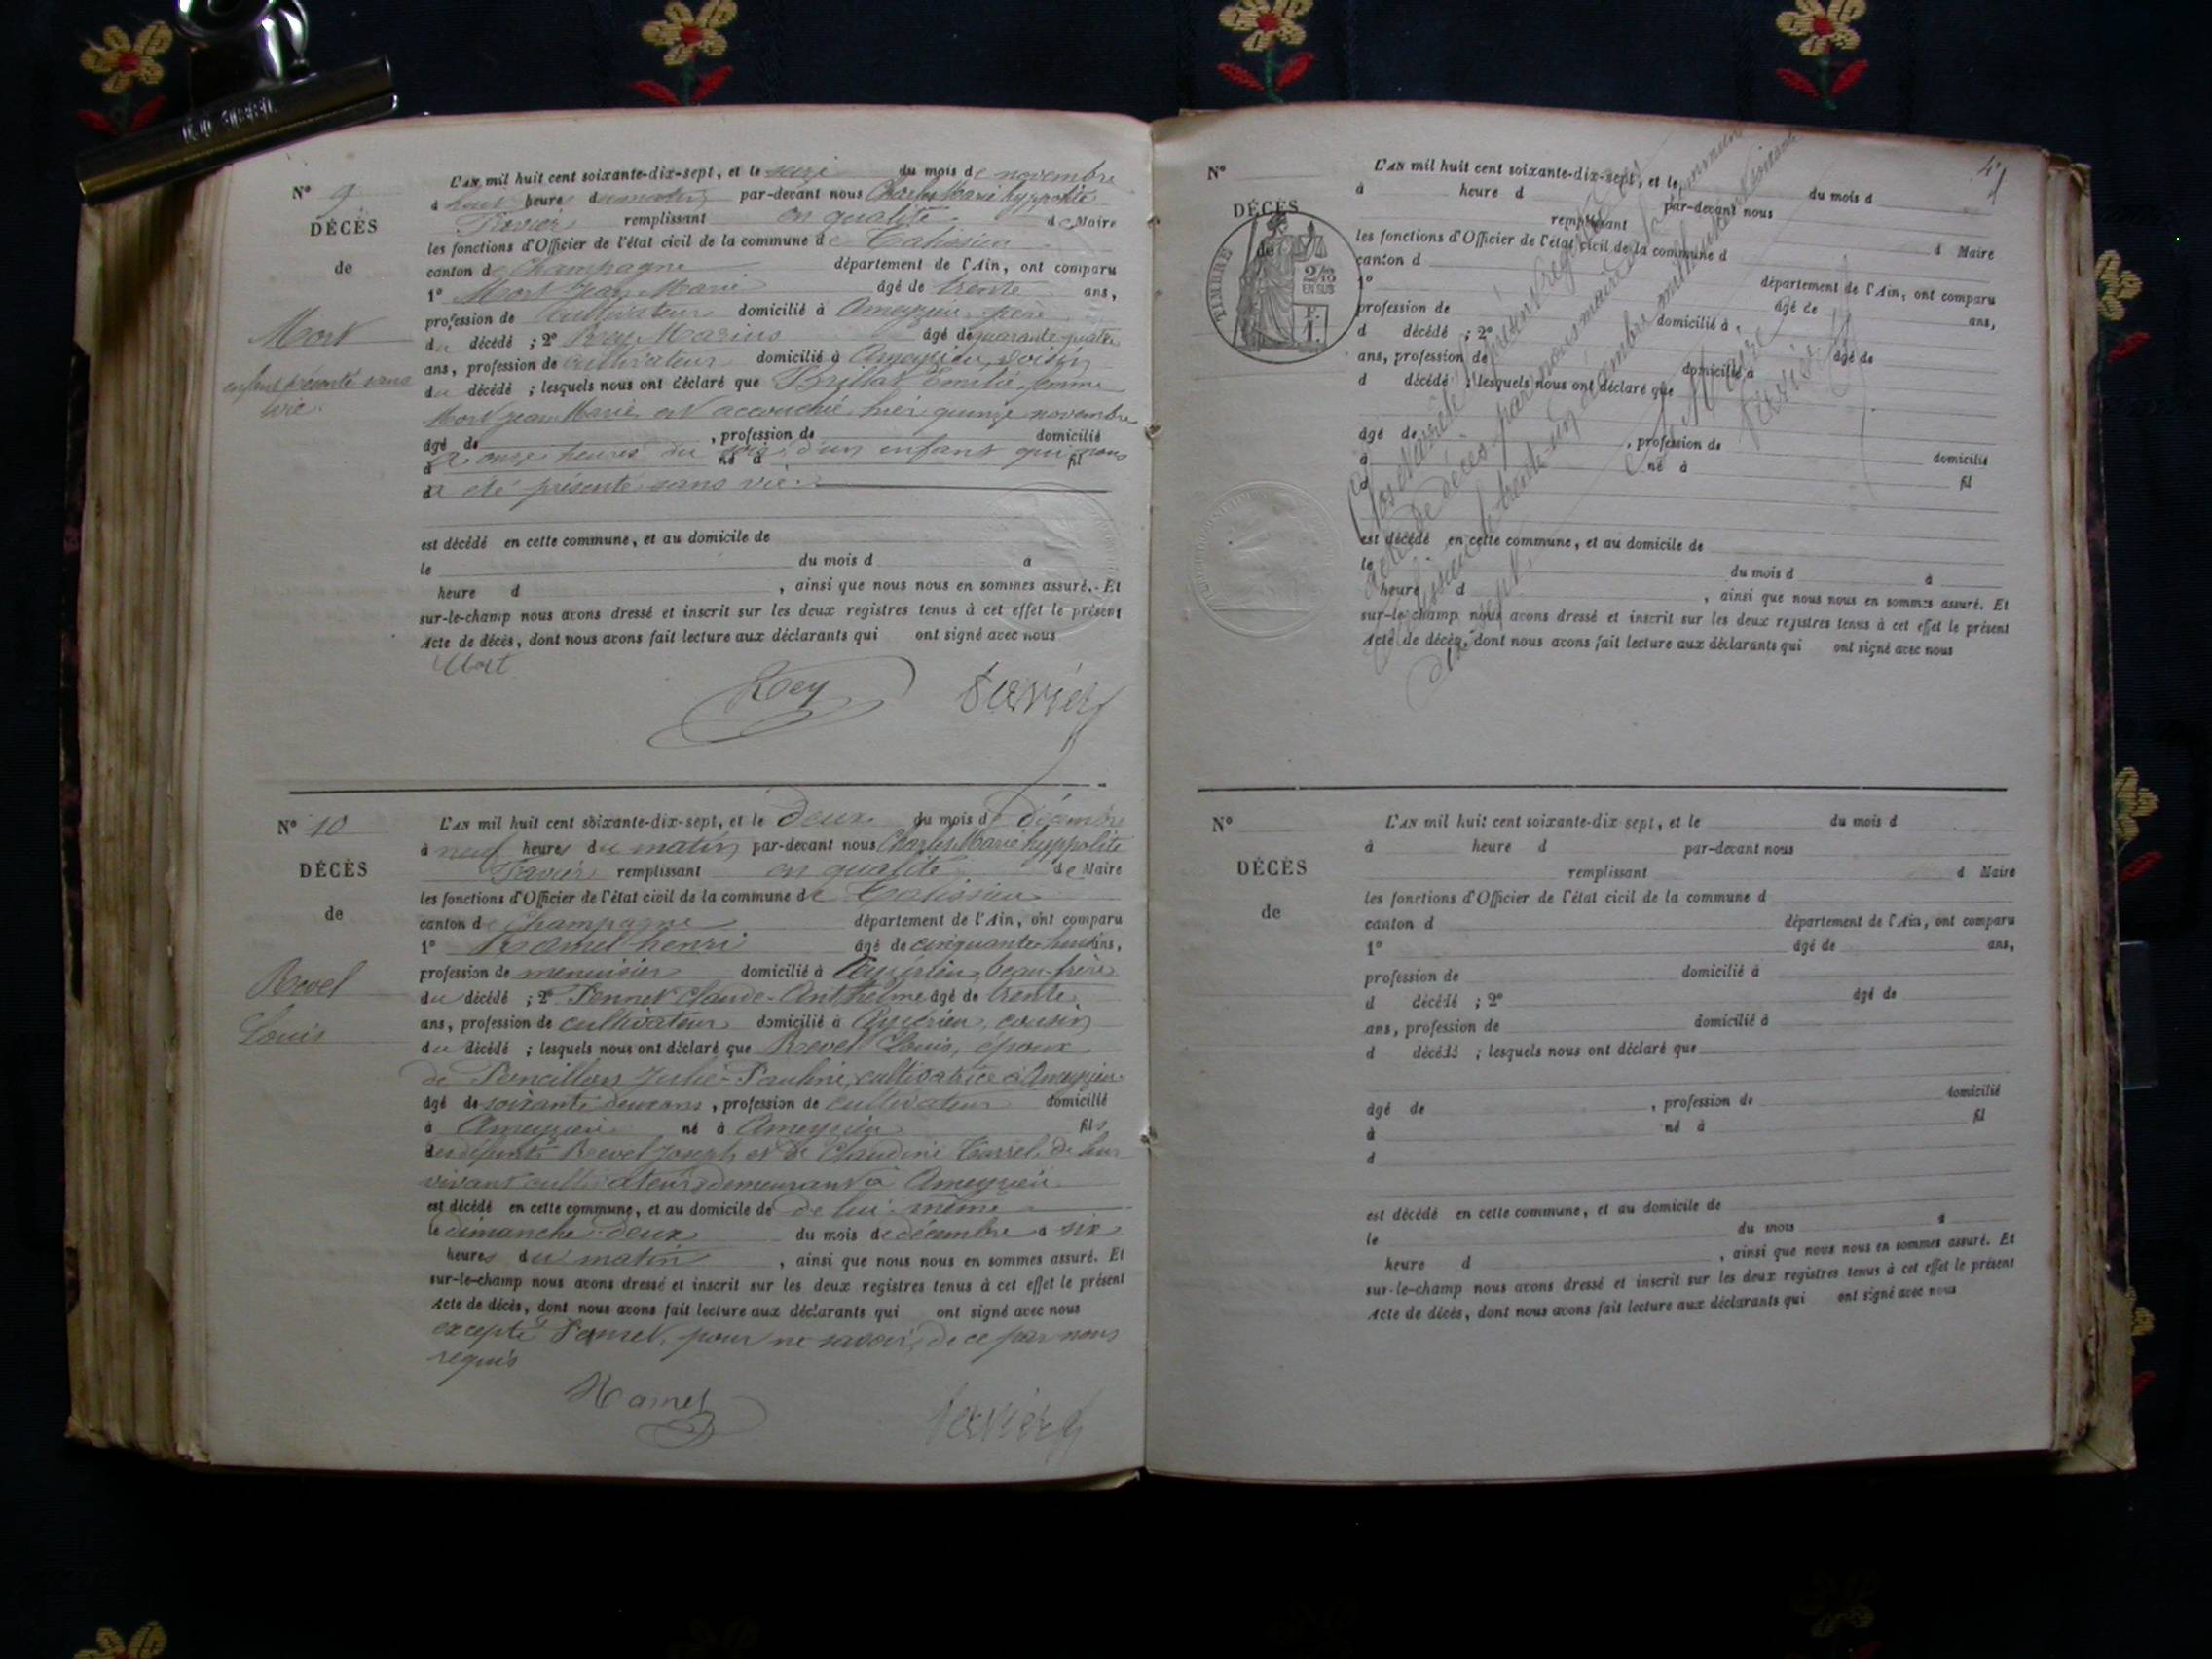 N° 9
DÉCÈS
de
Mort
enfant présenté sans
vie.
L'AN mil huit cent soixante-dix-sept, et le seize du mois de novembre
à huit heures du matin par-devant nous Charles Marie hyppolite
remplissant en qualité de Maire
les fonctions d'Officier de l'état civil de la commune de Talissieu
canton de Champagne département de l'Ain, ont comparu
1° Mort Jean Marie âgé de trente ans,
profession de cultivateur domicilié à Ameyzieu père
du décédé ; 2° Rey Marius âgé de quarante-quatre
ans, profession de cultivateur domicilié à Ameyzieu, voisin
du décédé ; lesquels nous ont déclaré que Brillat Emélie femme
Mort Jean Marie est accouchée hier quinze novembre
âgé de , profession de domicilié
à onze heures du soir d'un enfant qui nous
à né à fil
a été présenté sans vie.
est décédé en cette commune, et au domicile de
le du mois d à
heure d , ainsi que nous nous en sommes assuré. - Et
sur-le-champ nous avons dressé et inscrit sur les deux registres tenus à cet effet le présent
Acte de décès, dont nous avons fait lecture aux déclarants qui ont signé avec nous
Mort
Rey
N° 10
DÉCÈS
de
Revel
Louis
L'AN mil huit cent soixante-dix-sept, et le Deux du mois de Décembre
à neuf heures du matin par-devant nous Charles Marie hyppolite
remplissant en qualité de Maire
les fonctions d'Officier de l'état civil de la commune de Talissieu
canton de Champagne département de l'Ain, ont comparu
1° Hamel henri âgé de cinquante-huit ans,
profession de menuisier domicilié à beau-frère
du décédé ; 2° Claude-Anthelme âgé de trente
ans, profession de cultivateur domicilié à cousin
du décédé ; lesquels nous ont déclaré que Revel Louis, époux
de Julie-Pauline, cultivatrice à Ameyzieu
âgé de soixante deux ans, profession de cultivateur domicilié
à Ameyzieu né à Ameyzieu fils
des défunts Revel Joseph et de Claudine de leur
vivant cultivateurs demeurant à Ameyzieu
est décédé en cette commune, et au domicile de de lui-même
le dimanche deux du mois de décembre à six
heures du matin, ainsi que nous nous en sommes assuré. Et
sur-le-champ nous avons dressé et inscrit sur les deux registres tenus à cet effet le présent
Acte de décès, dont nous avons fait lecture aux déclarants qui ont signé avec nous
excepté pour ne savoir, de ce par nous
requis
Hamel
N°
DÉCÈS
de
TIMBRE
2/10
EN SUS
F.
1.
L'AN mil huit cent soixante-dix-sept, et le du mois d
à heure d par-devant nous
remplissant d Maire
les fonctions d'Officier de l'état civil de la commune d
canton d département de l'Ain, ont comparu
1° âgé de ans,
profession de domicilié à
d décédé ; 2° âgé de
ans, profession de domicilié à
d décédé ; lesquels nous ont déclaré que
âgé de , profession de domicilié
à né à fil
d
est décédé en cette commune, et au domicile de
le du mois d à
heure d , ainsi que nous nous en sommes assuré. Et
sur-le-champ nous avons dressé et inscrit sur les deux registres tenus à cet effet le présent
Acte de décès, dont nous avons fait lecture aux déclarants qui ont signé avec nous
Clos et arrêté le présent registre des
actes de décès par nous maire de la commune
de Talissieu le trente-un décembre mil huit cent soixante
dix sept.
Le Maire
N°
DÉCÈS
de
L'AN mil huit cent soixante-dix sept, et le du mois d
à heure d par-devant nous
remplissant d Maire
les fonctions d'Officier de l'état civil de la commune d
canton d département de l'Ain, ont comparu
1° âgé de ans,
profession de domicilié à
d décédé ; 2° âgé de
ans, profession de domicilié à
d décédé ; lesquels nous ont déclaré que
âgé de , profession de domicilié
à né à fil
d
est décédé en cette commune, et au domicile de
le du mois à
heure d , ainsi que nous nous en sommes assuré. Et
sur-le-champ nous avons dressé et inscrit sur les deux registres tenus à cet effet le présent
Acte de décès, dont nous avons fait lecture aux déclarants qui ont signé avec nous